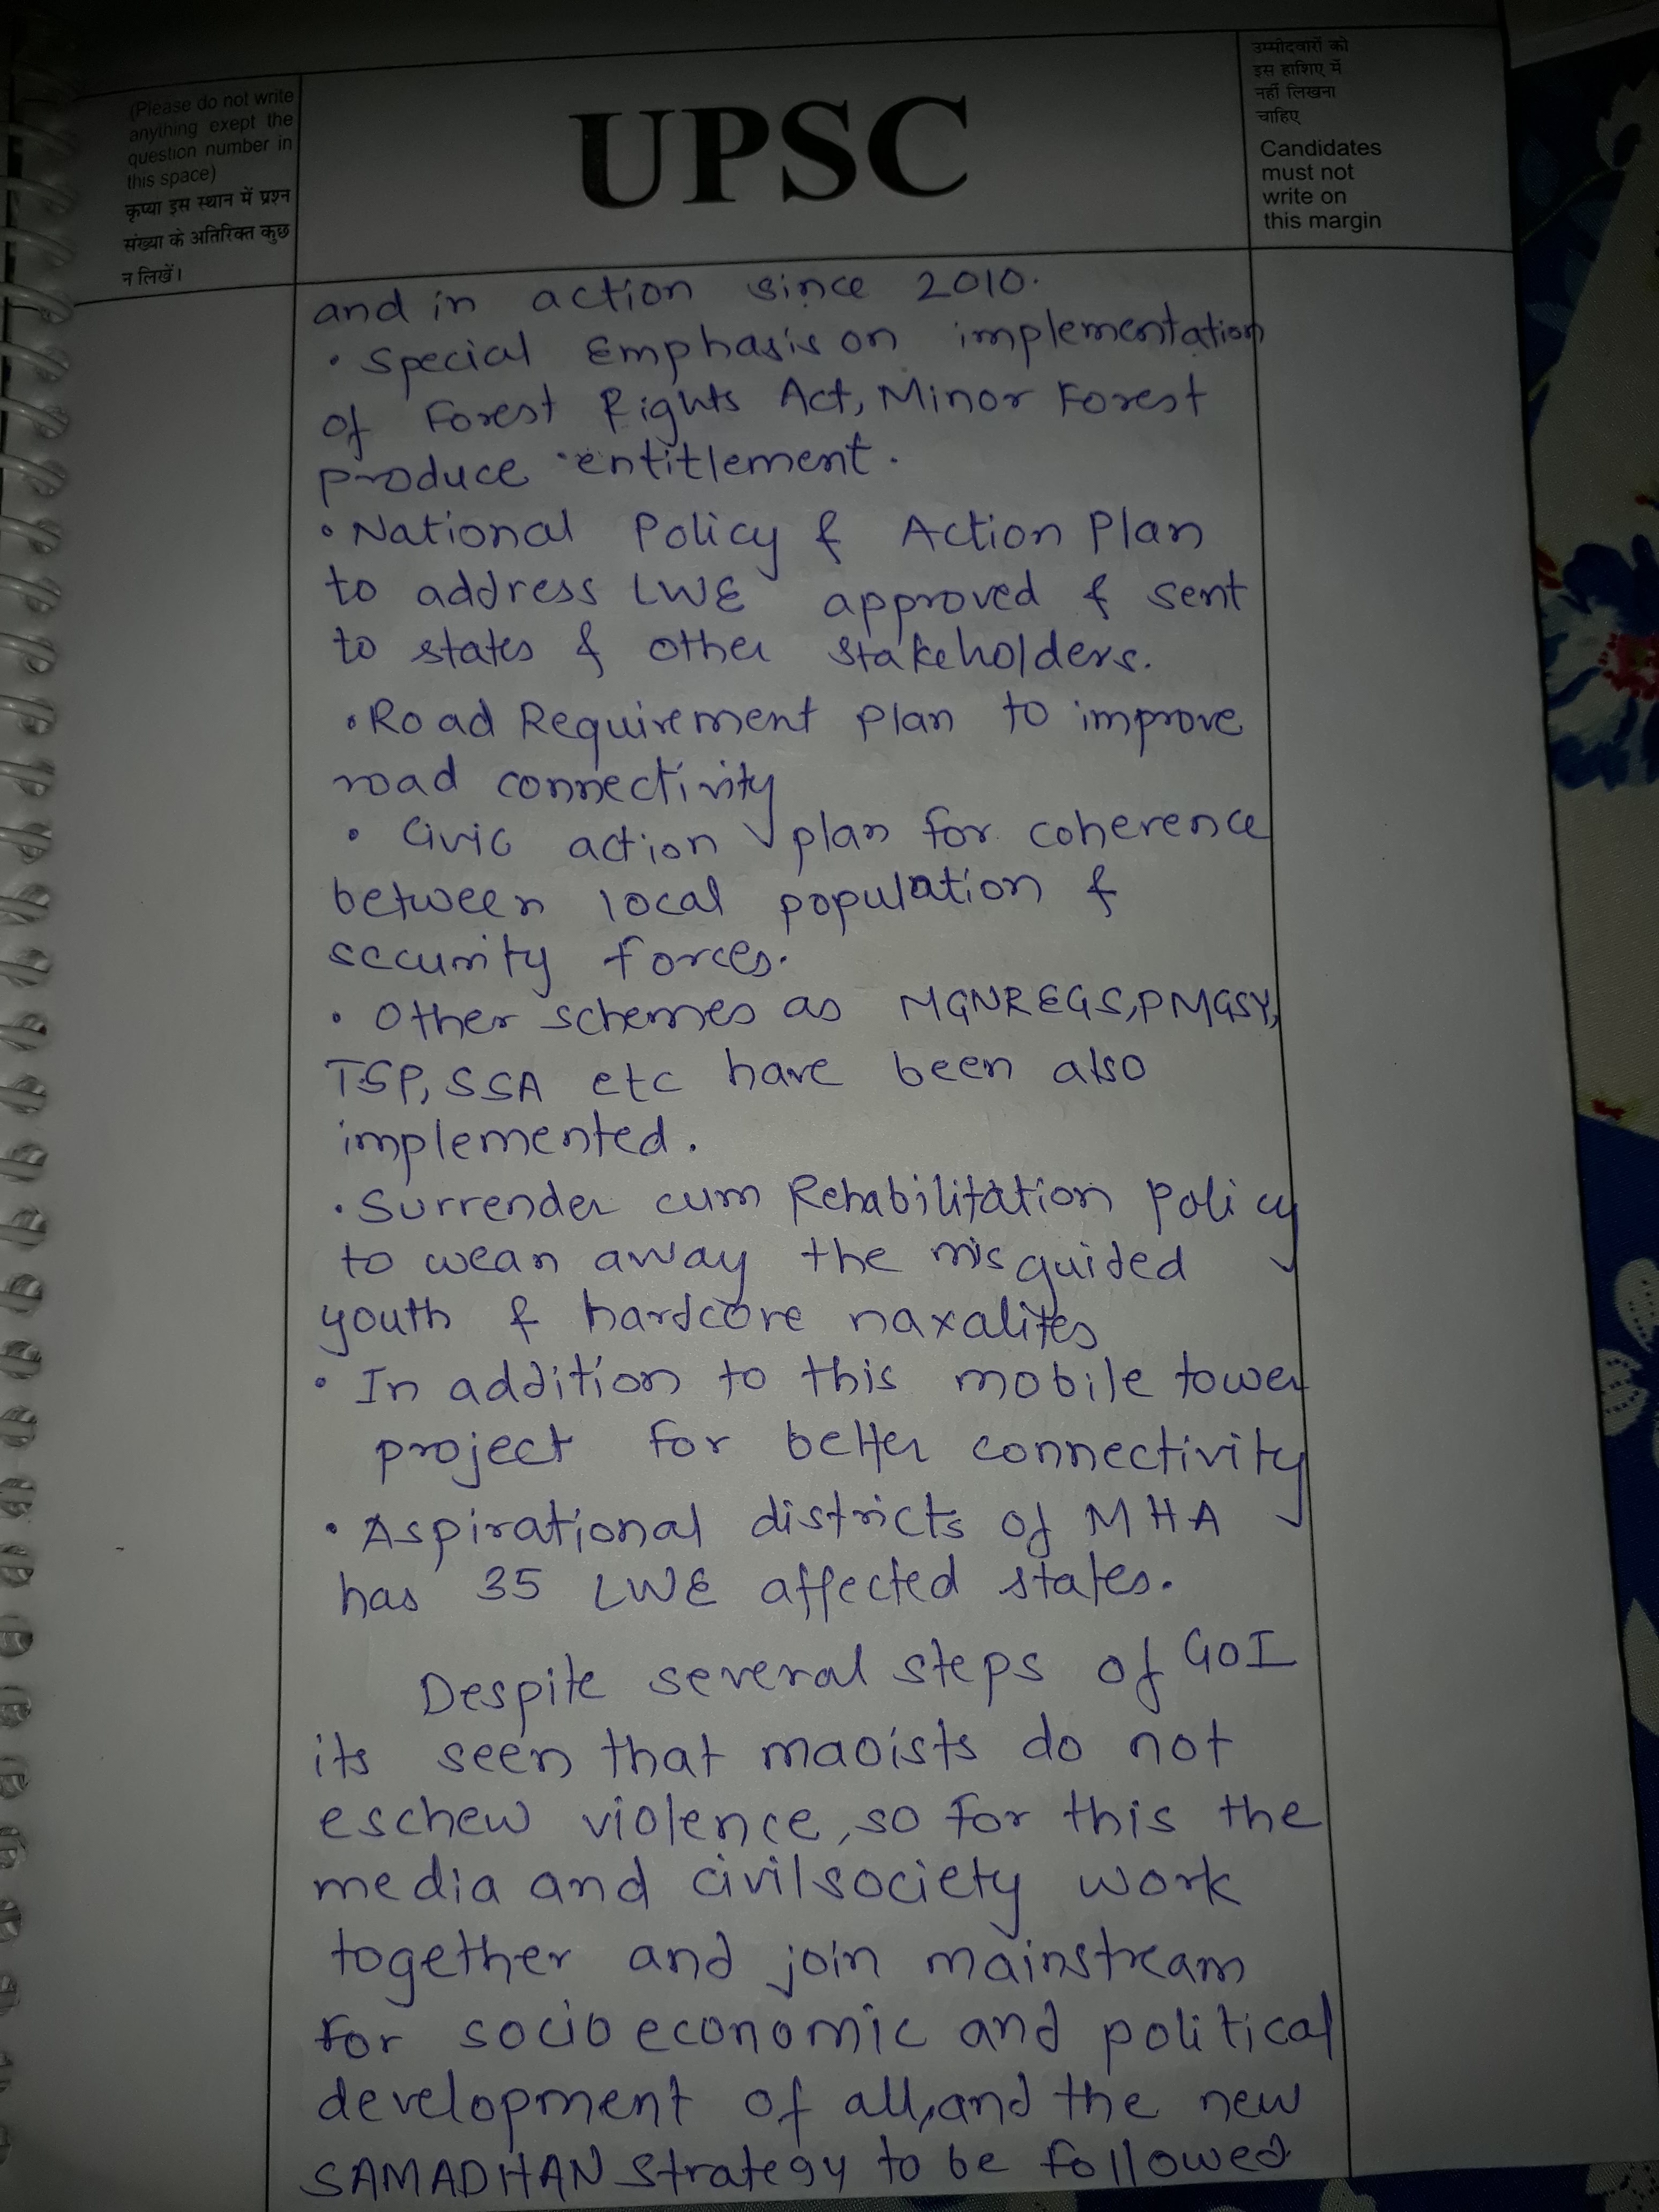 (Please do not write
anything exept the
question number in
this space)
कृप्या इस स्थान में प्रश्न
संख्या के अतिरिक्त कुछ
न लिखें।
UPSC
उम्मीदवारों को
इस हाशिए में
नहीं लिखना
चाहिए
Candidates
must not
write on
this margin
and in action since 2010.
• Special Emphasis on implementation
of Forest Rights Act, Minor Forest
produce entitlement.
• National Policy & Action Plan
to address LWE approved & sent
to states & other stakeholders.
• Road Requirement Plan to improve
road connectivity
• Civic action plan for coherence
between local population &
security forces.
• Other schemes as MGNREGS, PMGSY,
TSP, SSA etc have been also
implemented.
• Surrender cum Rehabilitation policy
to wean away the misguided
youth & hardcore naxalites
• In addition to this mobile tower
project for better connectivity
• Aspirational districts of MHA
has 35 LWE affected states.
Despite several steps of GOI
its seen that maoists do not
eschew violence, so for this the
media and civil society work
together and join mainstream
for socio economic and political
development of all, and the new
SAMADHAN strategy to be followed